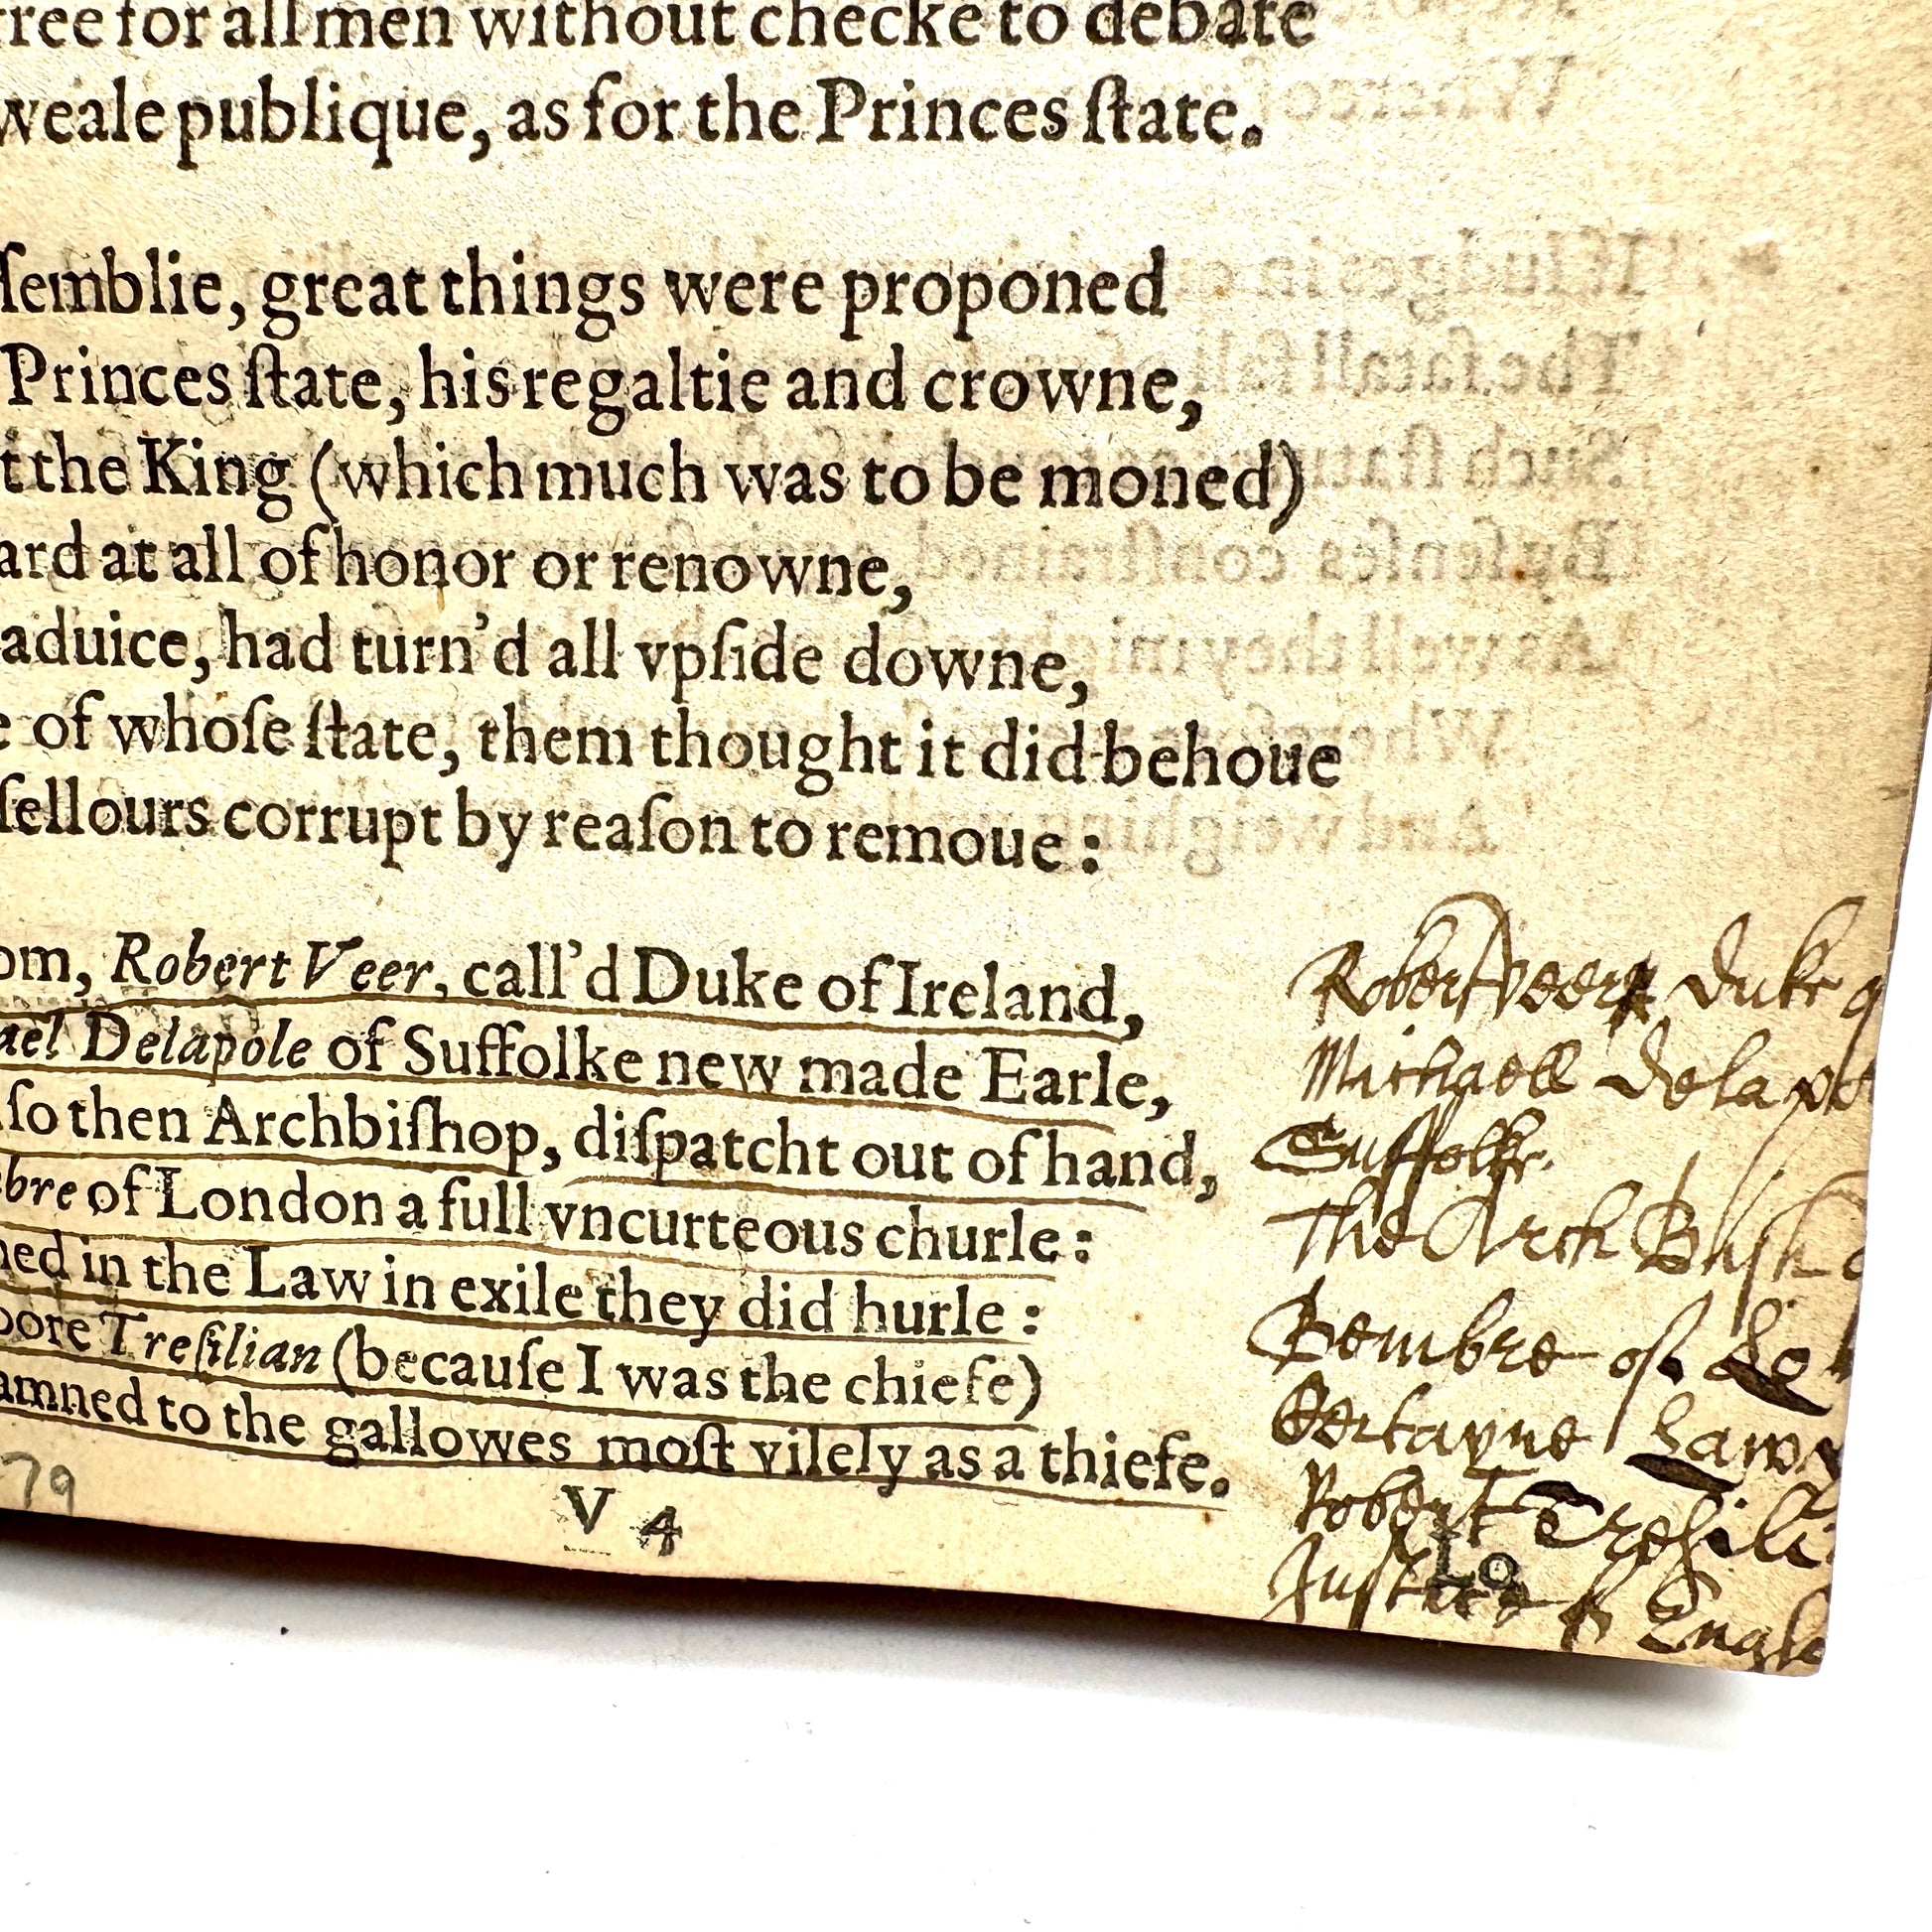 free for all men without checke to debate
weale publique, as for the Princes ſtate.
ſemblie, great things were proponed
Princes ſtate, his regaltie and crowne,
t the King (which much was to be moned)
ard at all of honor or renowne,
aduice, had turn'd all vpſide downe,
e of whoſe ſtate, them thought it did behoue
ſellours corrupt by reaſon to remoue :
om, Robert Veer, call'd Duke of Ireland,
ael Delapole of Suffolke new made Earle,
ſo then Archbiſhop, diſpatcht out of hand,
bre of London a full vncurteous churle :
ned in the Law in exile they did hurle :
oore Treſilian (becauſe I was the chiefe)
amned to the gallowes moſt vilely as a thiefe.
79
V 4
Lo
Robert veere Duke
Michaell Dela po
Suffolke.
The Arch Bish
Bembre of Lo
Certayne Lawy
Robert Tresili
Justice of Engla